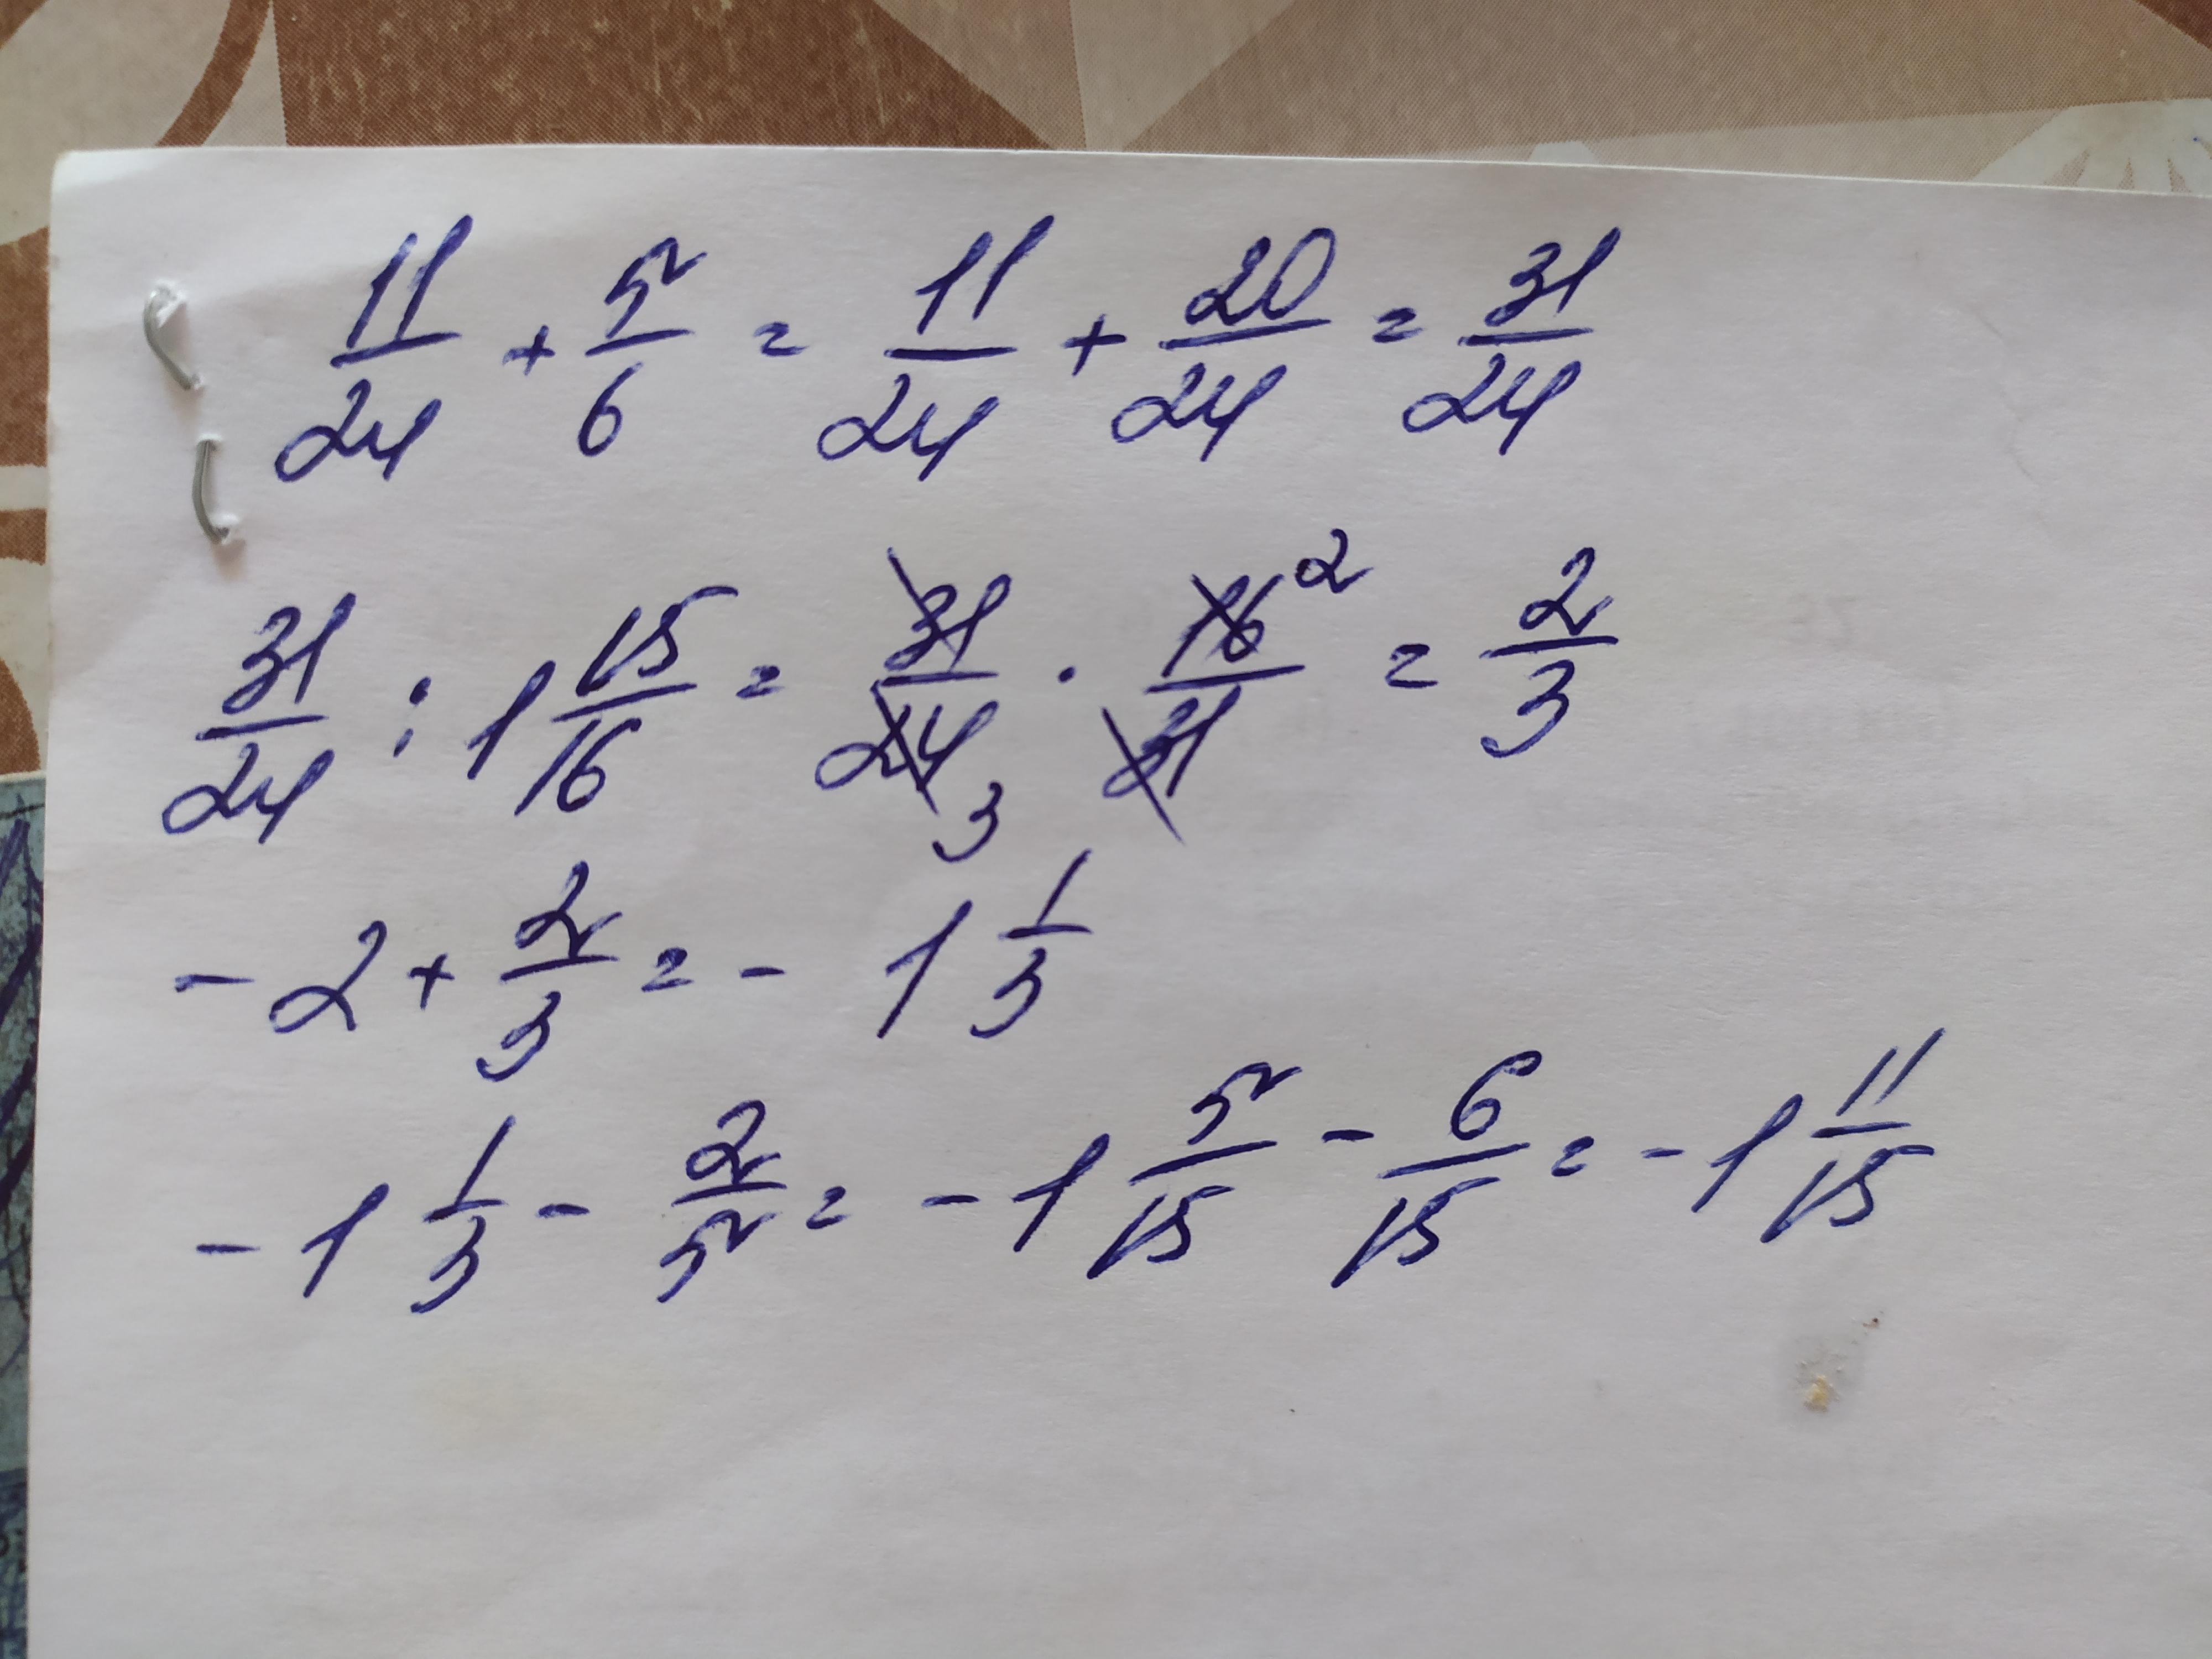 11/24 + 5/6 = 11/24 + 20/24 = 31/24
31/24 : 1 15/16 = 31/24 3 · 16/31 2 = 2/3
- 2 + 2/3 = - 1 1/3
- 1 1/3 - 2/5 = - 1 5/15 - 6/15 = - 1 11/15